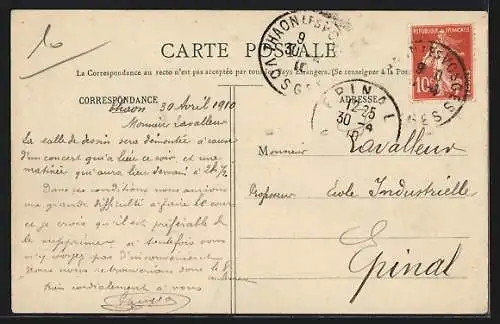 CARTE POSTALE
La Correspondance au recto n'est pas acceptée par tous les Pays Etrangers. (Se renseigner à la Pos
CORRESPONDANCE
ADRESSE
Thaon 30 Avril 1910
Monsieur Lavalleur
La salle de dessin sera démontée à cause
d'un concert qui a lieu ce soir et une
matinée qui aura lieu demain à 2h ½
Dans ces conditions nous aurions
une grande difficulté à faire le cour
et je crois qu'il est préférable de
le supprimer si toutefois vous
n'y voyez pas d'inconvénient
Nous nous retrouverions donc le
Bien cordialement à vous
Monsieur Lavalleur
Professeur École Industrielle
Epinal
REPUBLIQUE FRANÇAISE
10
THAON LES VOSGES
9
30
EPINAL
12-25
30 -4
10
VOSGES